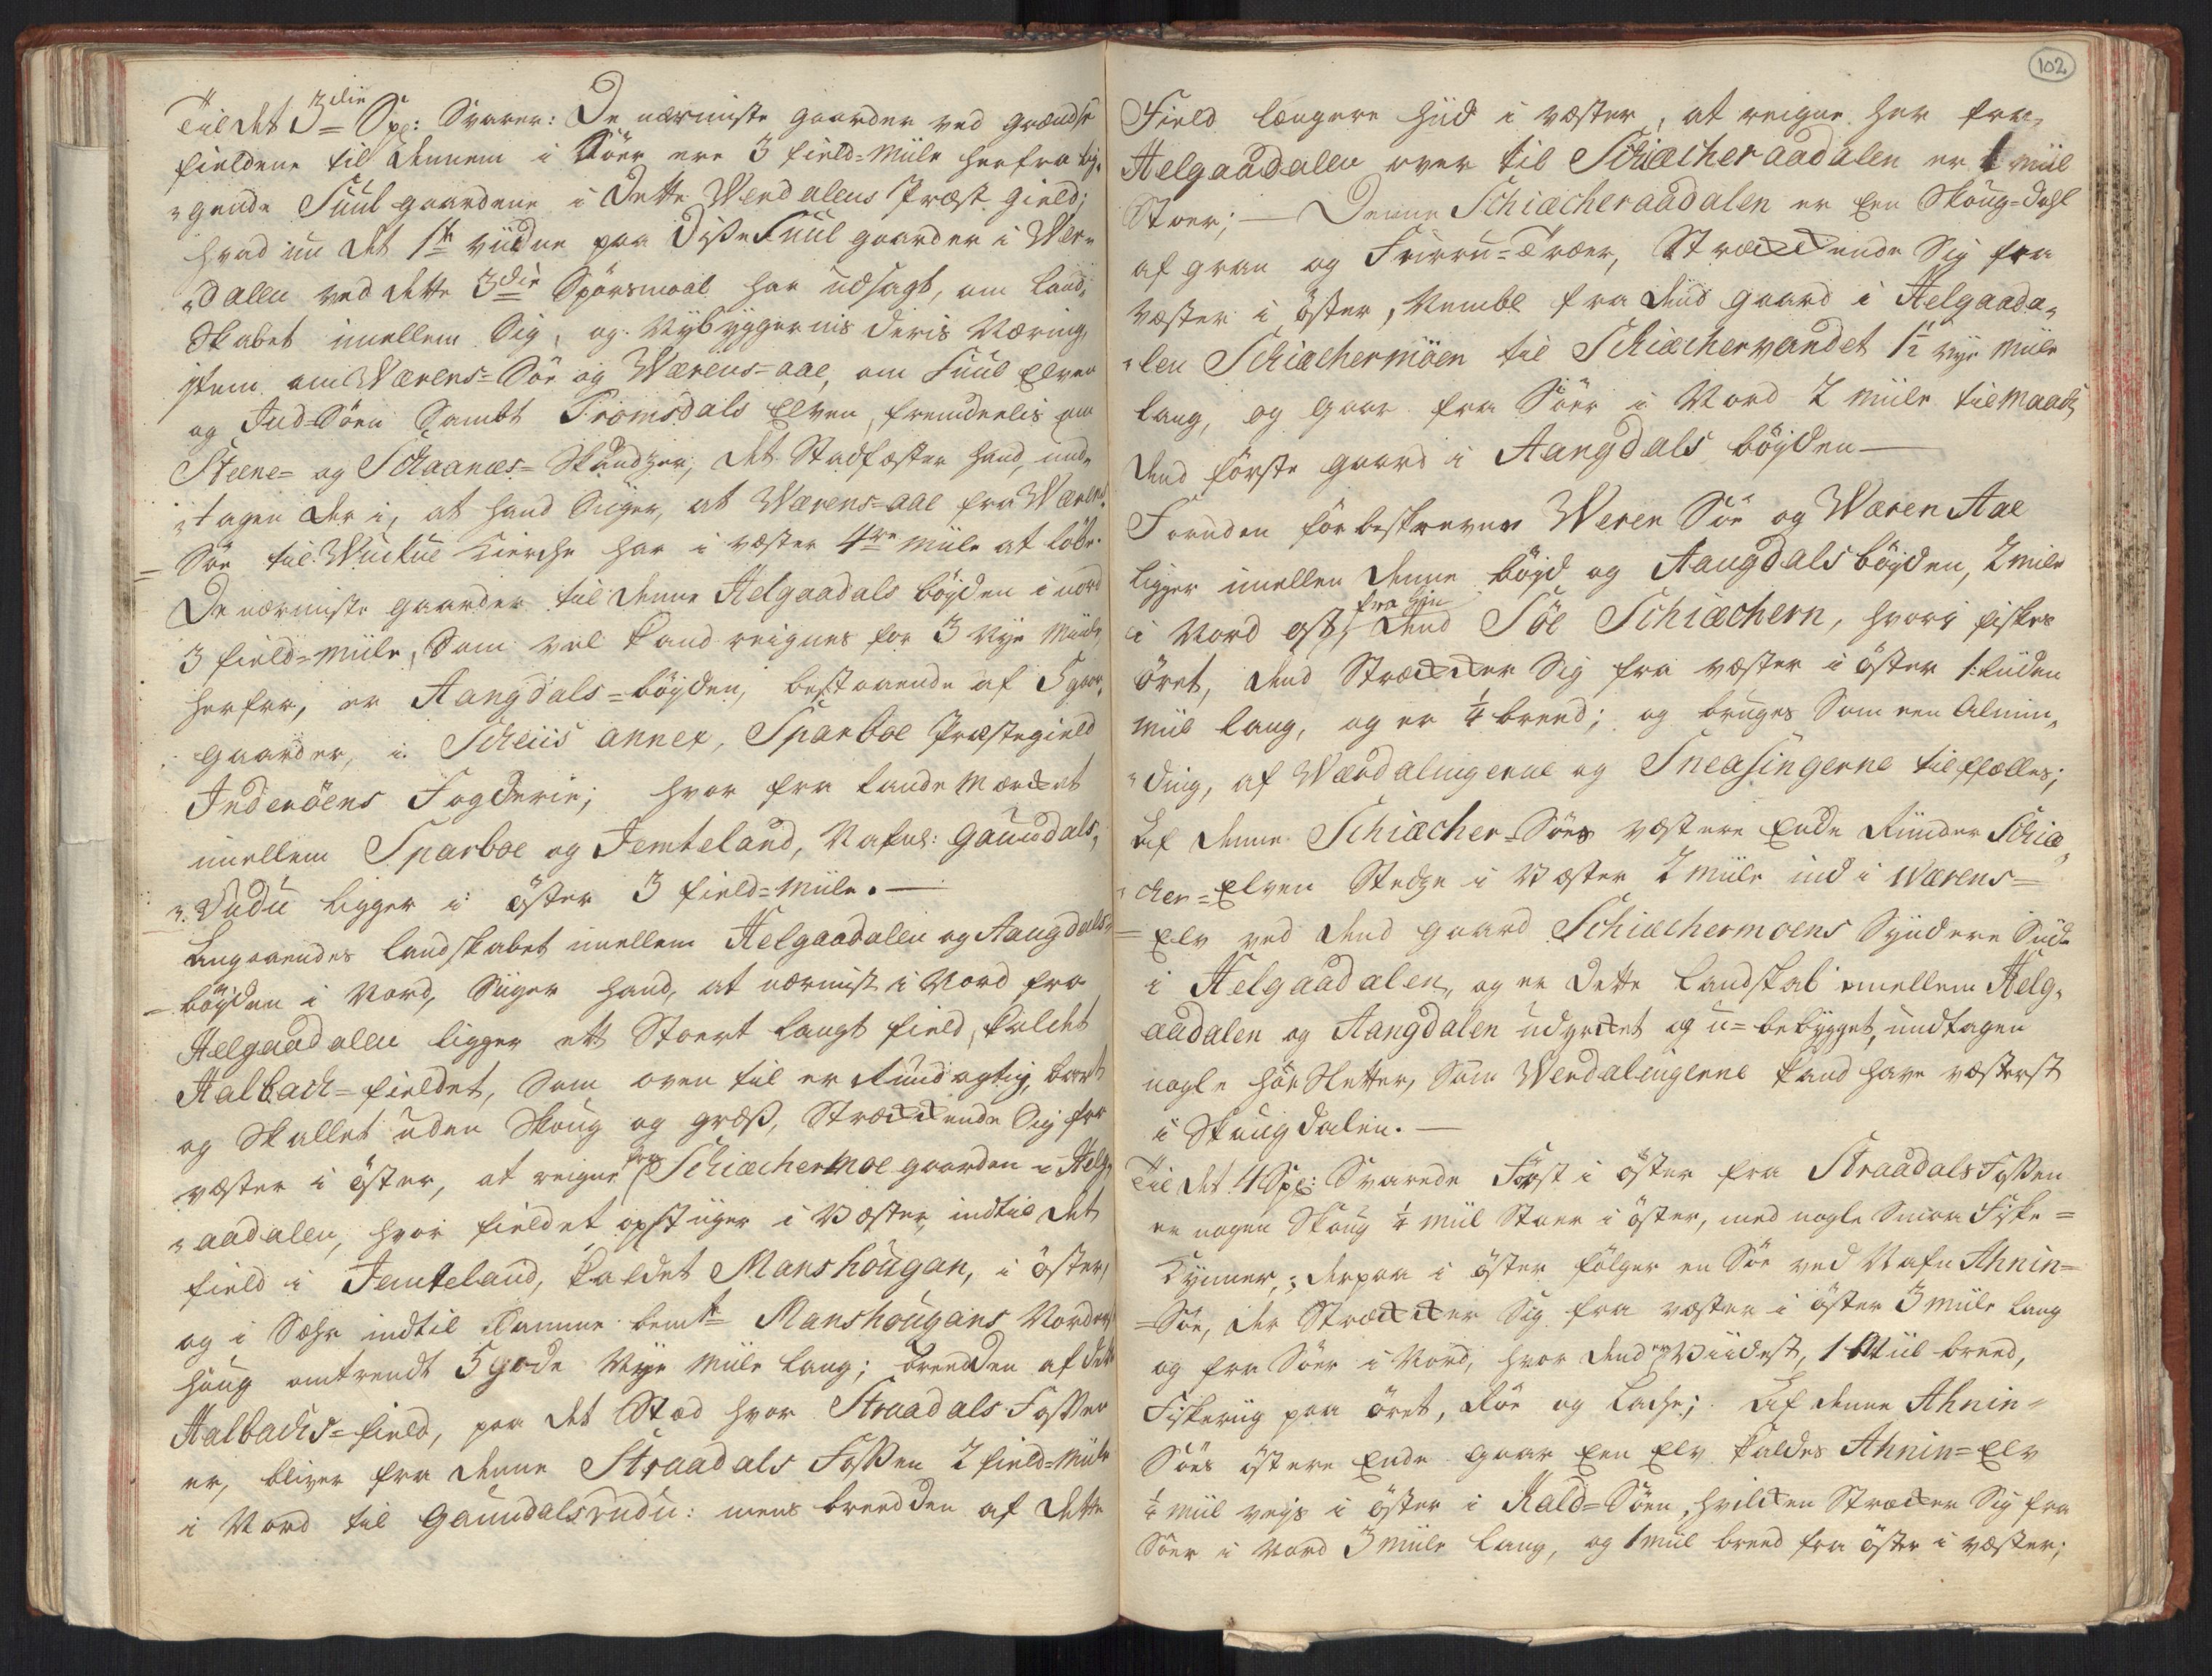 Til det 3die Sp: Svarer: De nærmiste gaarder ved grændse
fieldene til dennem i Söer ere 3 field-miile herfra lig,
gende Suul gaardene i dette Werdalens Præst gield;
hvad nu det 1te vidne paa diße Suul gaarder i Wer,
dallen ved dette 3die Spörsmaal har udsagt, om Land,
skabet imellem Sig, og Nybyggernis deris Næring,
item om Wærens-Söe og Wærens-aae, om Suul Elven
og Ind-Söen Sambt Tromsdals Elven, fremdeelis om
Steene- og Schaanæs-Skandzer, det Stadfæster hand, und,
tagen der i, at hand Siiger, at Wærens-aae fra Wærens
Söe til Wuckue Kierche har i væster 4re miile at löbe.
De nærmiste gaarder til denne Helgaadals böyden i nord
3 field-miile, Som vel kand reignes for 3 Nye Miile,
herfra, er Aangdals-böyden, bestaaende af 5 gaar,
gaarder, i Scheiis annex, Sparboe Præstegield
Inderöens Fogderie; hvor fra Landemærcket
imellem Sparboe og Jemteland, Nafnl: Gaundals,
Rudu ligger i öster 3 field-Miile.
Angaaendes Landskabet imellem Helgaadalen og Aangdals,
böyden i Nord, Siiger hand, at nærmist i Nord fra
Helgaadalen ligger ett Stoert langt field, kaldet
Halback-fieldet, Som oven til er Rundagtig, bart
og Skallet uden Skoug og græß, Stræckende Sig fra
væster i öster, at reigne fra Schiæchermoe gaarden i Helg,
aadalen, hvor fieldet opstiiger i Væster, indtil det
field i Jemteland, kaldet Manshougan, i öster,
og i Söhr indtil samme bemte Manshougans Norder
houg omtrendt 5 gode Nye Miile lang; breedden af dette
Halbachs-field, paa det Stæd hvor Straadals Foßen
er, bliver fra denne Straadals Foßen 2 field-Miile
i Nord til Gaundalsrudu: mens breedden af dette
102
Field længere hiid i væster, at reigne her fra
Helgaadallen over til Schiæcheraadalen er 1 miil
Stoer; Denne Schiæcheraadalen er Een Skoug-Dahl
af gran og Furru-Træer, Stræckende Sig fra
væster i öster, Nembl fra dend gaard i Helgaada,
len Schiæchermöen til Schiæchervandet 1½ nye Miile
lang, og gaar fra Söer i Nord 2 miile til Maack,
dend förste gaard i Aangdals böyden
Foruden forbeskreven Weren Söe og Wæren Aae
ligger imellem denne böyd og Aangdals böyden, 2 mile
i Nord ost, fra hin dend Söe Schiæchern, hvori fiskes
öret, dend Stræcker Sig fra væster i öster 1 liiden
miil lang, og er ¼ breed; og bruges Som een Almin,
ding, af Wærdalingerne og Sneasingerne til fælles;
Af denne Schiæcher-Söes væstere Ende Rinder Schiæ,
cher-Elven Stedze i Væster 2 miile ind i Wærens-
Elv ved dend gaard Schiæchermoens Syndere Side
i Helgaadalen, og er dette Landskab imellem Helg,
aadalen og Aangdalen udyrcket og u-bebygget, undtagen
nogle höe Sletter, Som Werdalingerne kand have væsterst
i Skougdalen.
Til det 4 Sp: Svarede Först i öster fra Straadals Foßen
er nogen Skoug ¼ miil Stoer i öster, med nogle Smaa Fiske-
Kynner; derpaa i öster fölger en Söe ved Nafn Ahnin-
Söe, der Stræcker Sig fra væster i öster 3 miile lang
og fra Söer i Nord, hvor dend er Viidest, 1 Miil breed,
Fiskeriig paa öret, Röe og Lache; Af denne Ahnin-
Söes östere Ende gaar Een Elv kaldes Ahnin-Elv
¼ miil veys i öster i Kald-Söen, hvilcken Stræcker Sig fra
Söer i Nord 3 miile lang, og 1 miil breed fra öster i væster;